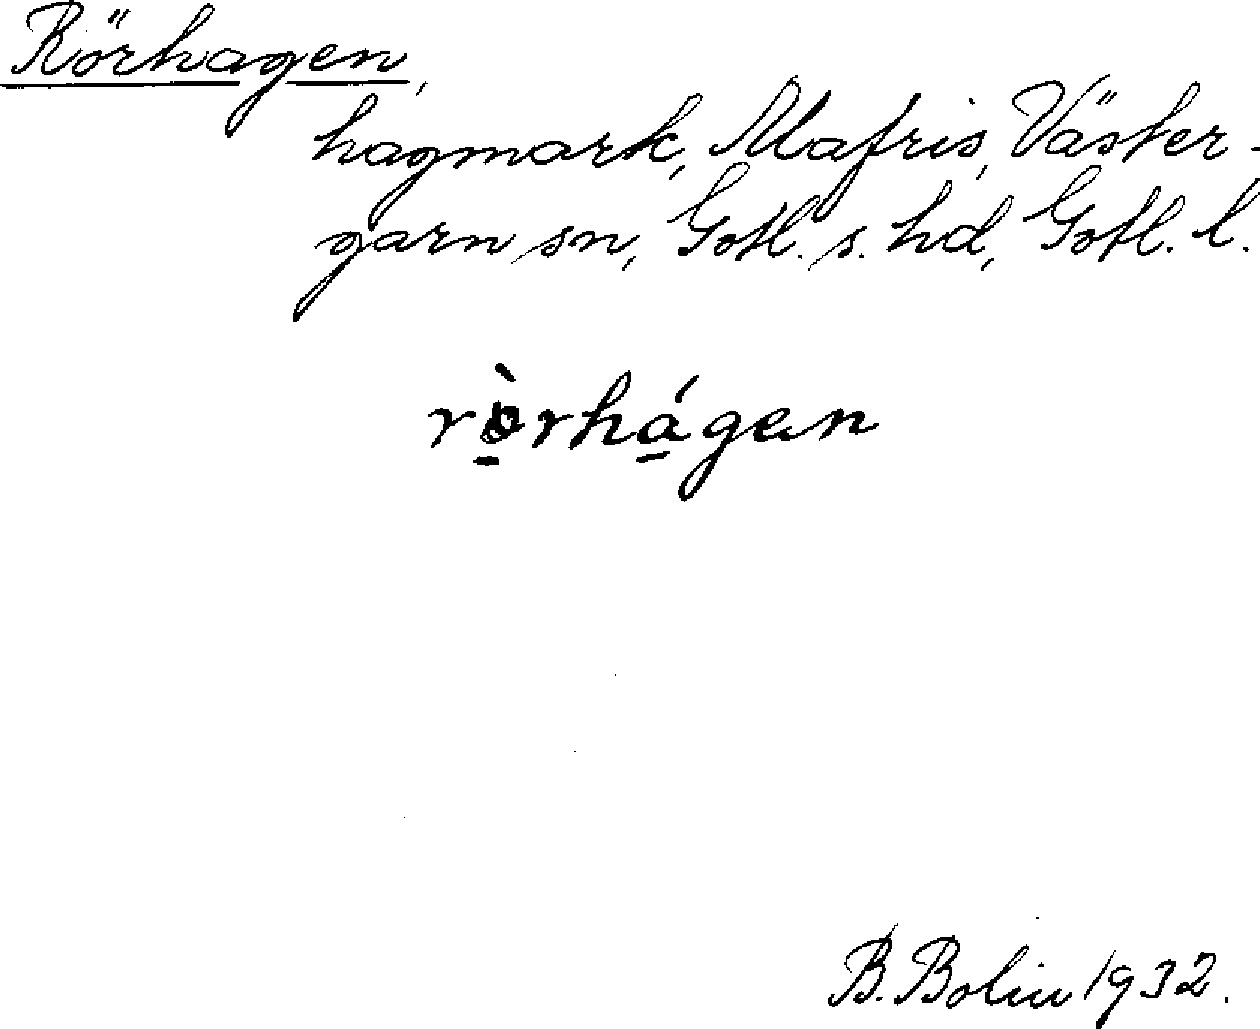 Rörhagen,
hagmark, Mafris, Väster-
garn sn, Gotl. s. hd, Gotl. l.
rö̀rhágen
B. Bolin 1932.